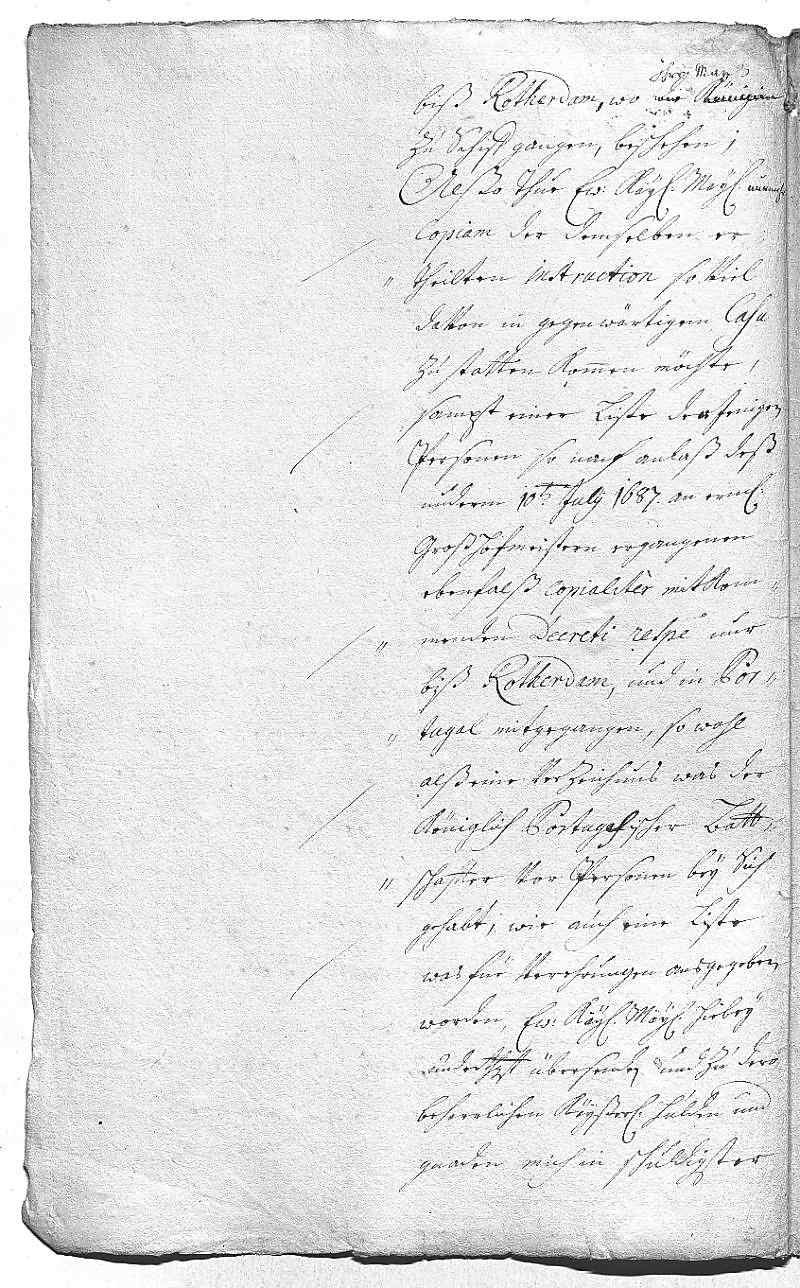 ihre May
biß Rotherdam, wo die Königin
zu Schiff gangen, beschehen;
Alß thue Ew: Kayl: Mayl:
Copiam der demselben er„
theilten instruction so viel
davon in gegenwärtigem Casu
zu statten kommen möchte,
sampt einer Liste derjenigen
Personen so nach anlaß deß
underm 10ten July 1687. an erml:
Großhofmeistern ergangenen
ebenfalß copialiter mitkom„
menden Decreti respe nur
biß Rotherdam, und in Por„
tugal mitgegangen, so wohl
alß eine Verzeichnus was der
Königlich Portugesischer Bott„
schaffter vor Personen bey Sich
gehabt, wie auch eine Liste
was für Verehrungen ausgegeben
worden, Ew: Kayl: Mayl: hiebey
underthgst übersenden und zu dero
beharrlichen Kayßerl: hulden und
gnaden mich in schuldigster